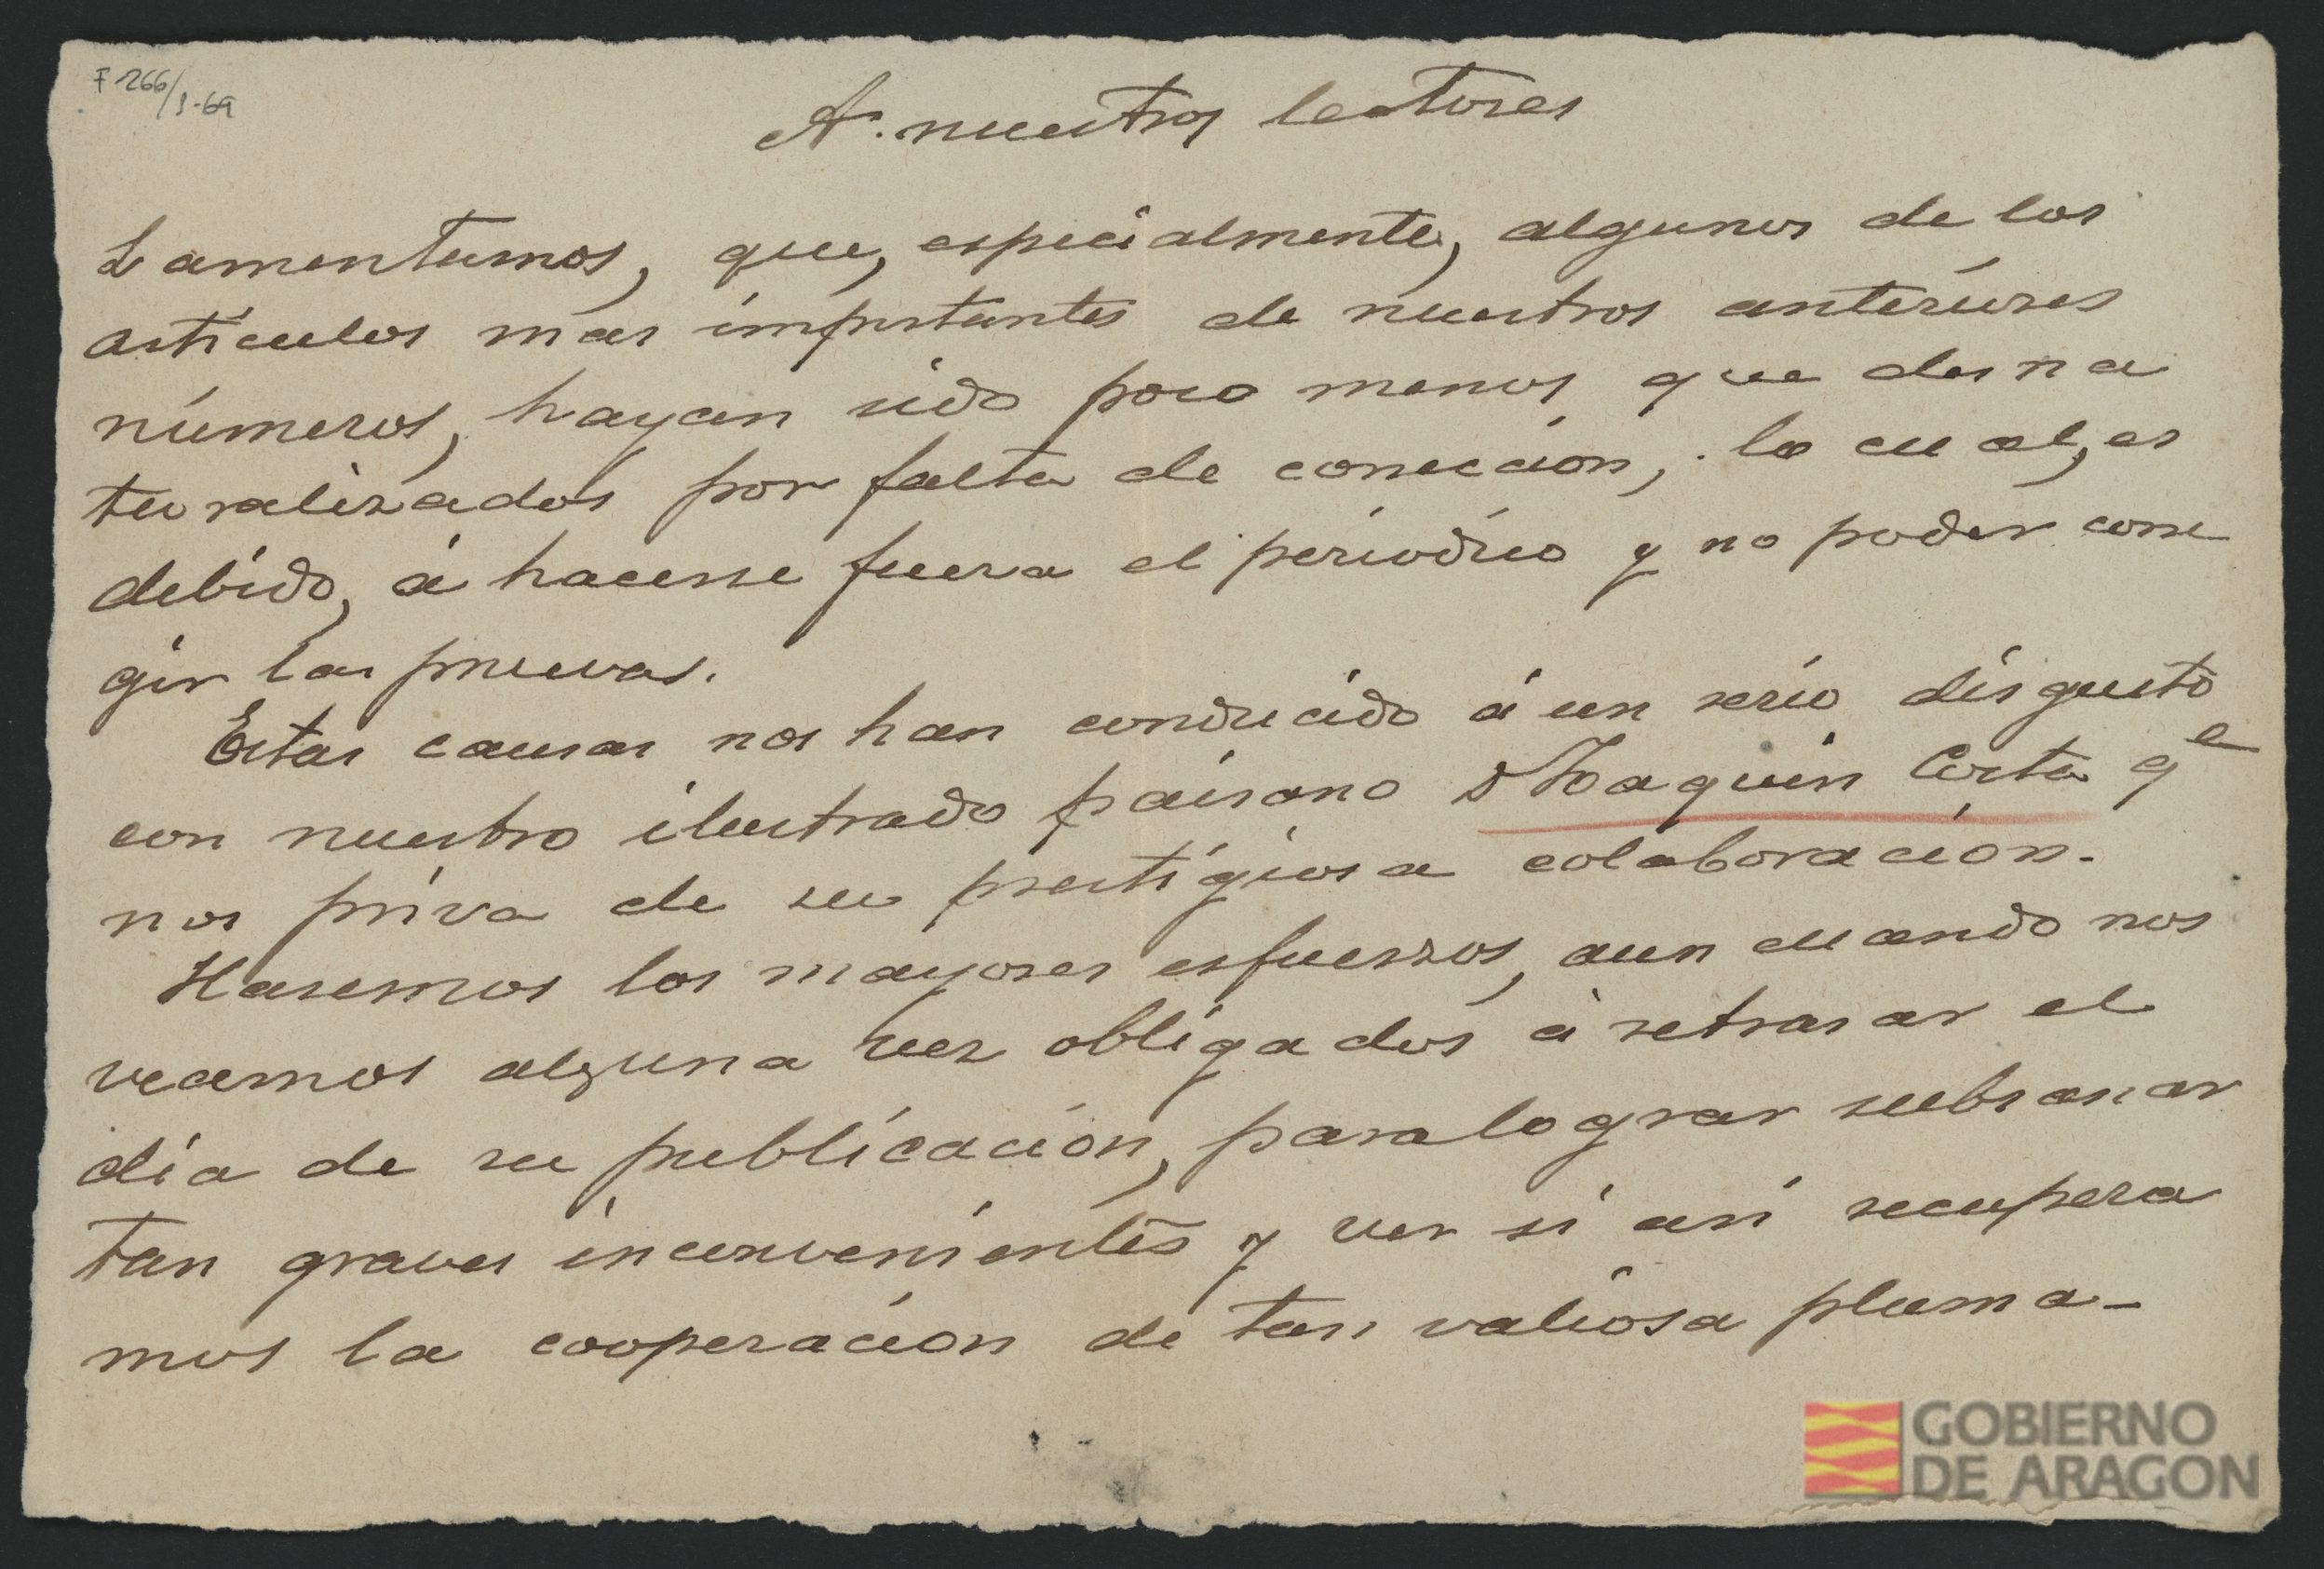 F 266/1-69
A nuestros lectores
Lamentamos, que, especialmente, algunos de los
articulos mas importantes de nuestros anteriores
números, hayan sido poco menos que desna
turalizados por falta de corrección; lo cual, es
debido, á hacerse fuera el periódico y no poder corre
gir las pruevas.
Estas causas nos han conducido á un serio disgusto
con nuestro ilustrado paisano D Joaquin Costa qe
nos priva de su prestigiosa colaboración.
Haremos los mayores esfuerzos, aun cuando nos
veamos alguna vez obligados á retrasar el
dia de su publicación, para lograr subsanar
tan graves inconvenientes y ver si asi recupera
mos la cooperación de tan valiosa pluma-
GOBIERNO
DE ARAGON